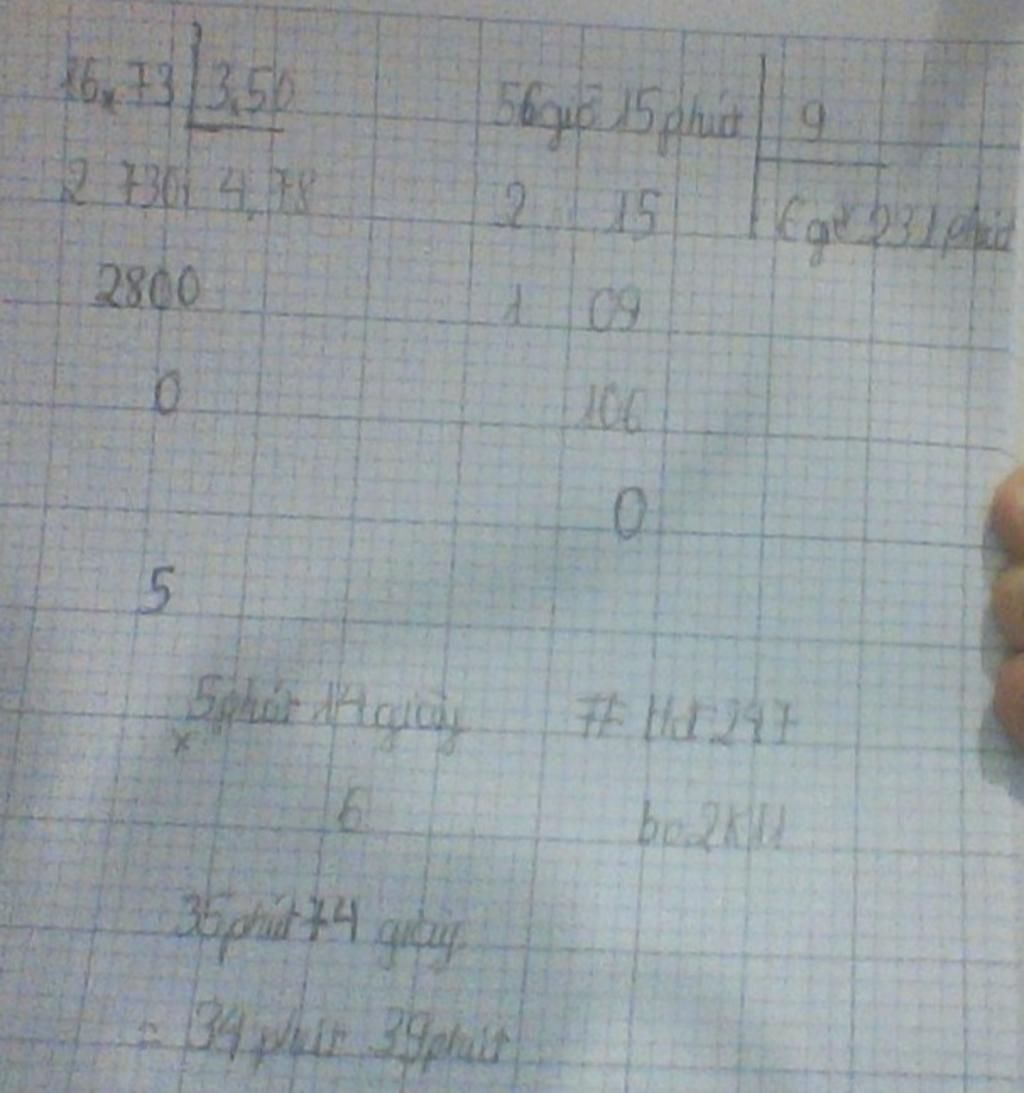 16,73 3,50
2 730 4,78
2800
0
56giờ 15phút 9
2 15 6giờ 231phút
1 09
106
0
5
5phút 14giây
x
6
35phút 74 giây
= 34 phút 39phút